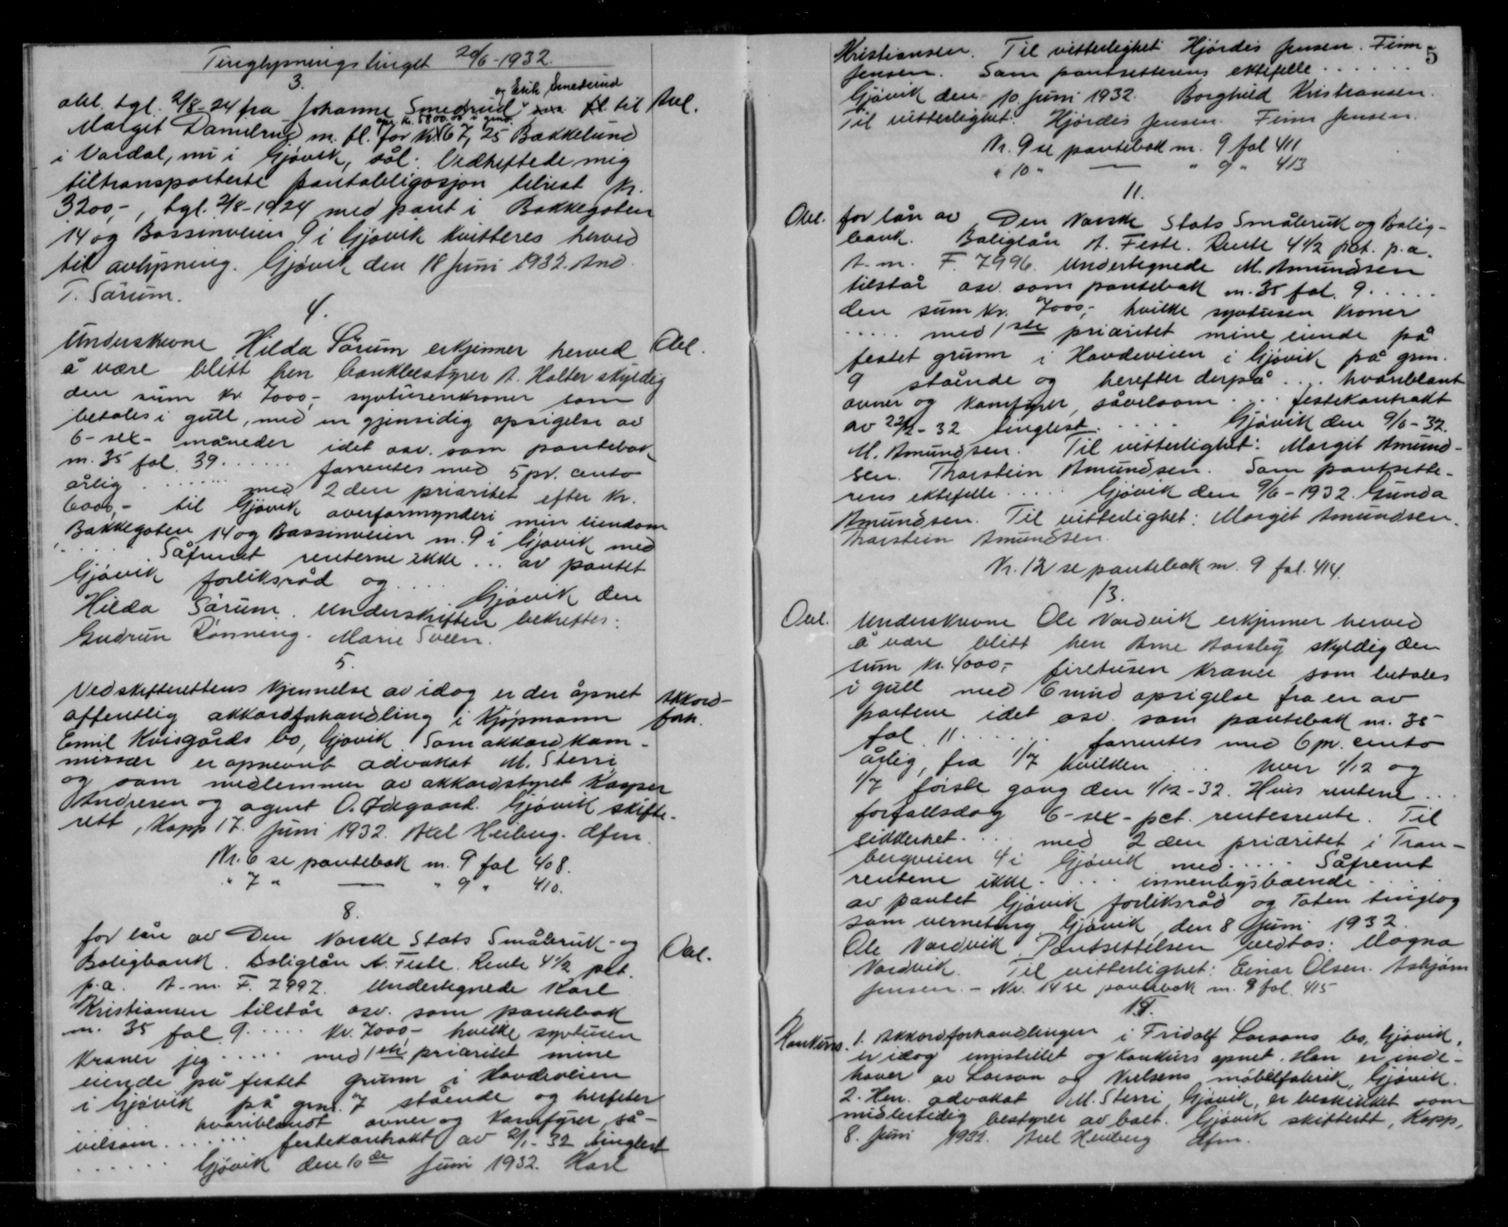 Tinglysningstinget 20/6-1932.
3.
og Erik Smedsrud
obl. tgl. 2/8-24 fra Johanne Smedsrud til Avl.
Margit Danielsrud m. fl. for kr. 67, 25 Bakkelund
i Vardal, nu i Gjøvik, sål. Vedheftede mig
tiltransporterte pantobligasjon tilrest kr.
3200,-, tgl. 2/8-1924 med pant i Bakkegaten
14 og Bassinveien 9 i Gjøvik kvitteres herved
til avlysning. Gjøvik den 18 juni 1932. And.
T. Sørum.
4.
Underskrevne Hilda Sørum erkjenner herved Obl.
å være blitt hen banklbestyrer A. Holter skyldig
den sum kr 7000,- syvtusenkroner som
betales i gull, med en gjensidig opsigelse av
6-sex- måneder idet osv. som pantebok
nr. 35 fol. 39...... forrentes med 5 pr. cento
årlig ....... med 2 den prioritet efter kr.
6000,- til Gjøvik overformynderi min eiendom
Bakkegaten 14 og Bassinveien nr. 9 i Gjøvik med
...... Såfremt renterne ikke ... av pantet
Gjøvik forliksråd og .... Gjøvik den
Hilda Sørum. Underskriften bekreftes:
Gudrun Rønning. Marie Sveen.
5.
Ved skifterettens kjennelse av idag er der åpnet Akkord-
offentlig akkordforhandling i kjøpmann forh.
Emil Kvisgårds bo, Gjøvik. Som akkordkom-
missær er opnevnt advokat M. Sterri
og som medlemmer av akkordstyret Kasper
Andresen og agent O. Ødegaard. Gjøvik skifte-
rett, Kapp 17. juni 1932. Axel Heiberg. dfm.
Nr. 6 se pantebok nr. 9 fol 408.
" 7 " — " 9 " 410.
8.
for lån av Den Norske Stats Småbruk- og Obl.
Boligbank. Boliglån A. Feste. Rente 4 1/2 pct.
p.a. A-m. F. 7997. Undertegnede Karl
Kristiansen tilstår osv. som pantebok
nr. 35 fol. 9..... kr. 7000,- hvilke syvtusen
kroner jeg ..... med 1ste prioritet mine
eiende på festet grunn i Hovdeveien
i Gjøvik på grnr. 7 stående og herefter
...... hvoriblandt ovner og komfyrer, så-
velsom ...... festekontrakt av 2/1-32 tinglest
...... Gjøvik den 10de juni 1932. Karl
5
Kristiansen. Til vitterlighet: Hjørdis Jensen. Finn
Jensen. Som pantsetterens ektefelle ......
Gjøvik den 10 juni 1932. Borghild Kristiansen.
Til vitterlighet: Hjørdis Jensen. Finn Jensen.
Nr. 9 se pantebok nr. 9 fol 411
" 10 " — " 9 " 413
11.
Obl. for lån av Den Norske Stats Småbruk og Bolig-
bank. Boliglån A. Feste. Rente 4 1/2 pct. p.a.
A-m. F. 7996. Undertegnede M. Amundsen
tilstår osv. som pantebok nr. 35 fol. 9.....
den sum kr. 7000,- hvilke syvtusen kroner
..... med 1ste prioritet mine eiende på
festet grunn i Hovdeveien i Gjøvik på grnr.
9 stående og herefter derpå .... hvoriblant
ovner og komfyrer, såvelsom ... festekontrakt
av 22/2-32 tinglest ..... Gjøvik den 9/6-32.
M. Amundsen. Til vitterlighet: Margit Amund-
sen. Thorstein Amundsen. Som pantsette-
rens ektefelle ..... Gjøvik den 9/6-1932. Gunda
Amundsen. Til vitterlighet: Margit Amundsen.
Thorstein Amundsen.
Nr. 12 se pantebok nr. 9 fol. 414.
13.
Obl. Underskrevne Ole Nordvik erkjenner herved
å være blitt hen Arne Aarsby skyldig den
sum kr. 4000,- firetusen kroner som betales
i gull med 6 mnd opsigelse fra en av
partene idet osv. som pantebok nr. 35
fol. 11...... forrentes med 6 pr. cento
årlig, fra 1/7 hvilken ... hver 1/12 og
1/7 første gang den 1/12-32. Hvis rentene ...
forfallsdag 6-sex-pct. rentesrente. Til
sikkerhet .... med 2 den prioritet i Tran-
bergveien 4 i Gjøvik med ..... Såfremt
rentene ikke .... innenbysboende ....
av pantet Gjøvik forliksråd og Toten tinglag
som verneting. Gjøvik, den 8 juni 1932.
Ole Nordvik. Pantsettelsen vedtas: Magna
Nordvik. Til vitterlighet: Einar Olsen. Asbjørn
Jensen. - Nr. 14 se pantebok nr. 9 fol. 415
15.
Konkurs. 1. Akkordforhandlingen i Fridolf Larsons bo, Gjøvik,
er idag innstillet og konkurs åpnet. Han er inde-
haver av Larson og Nielsens møbelfabrik, Gjøvik.
2. Hen. advokat M. Sterri, Gjøvik, er beskikket som
midlertidig bestyrer av boet. Gjøvik skifterett, Kapp,
8. juni 1932. Axel Heiberg dfm.